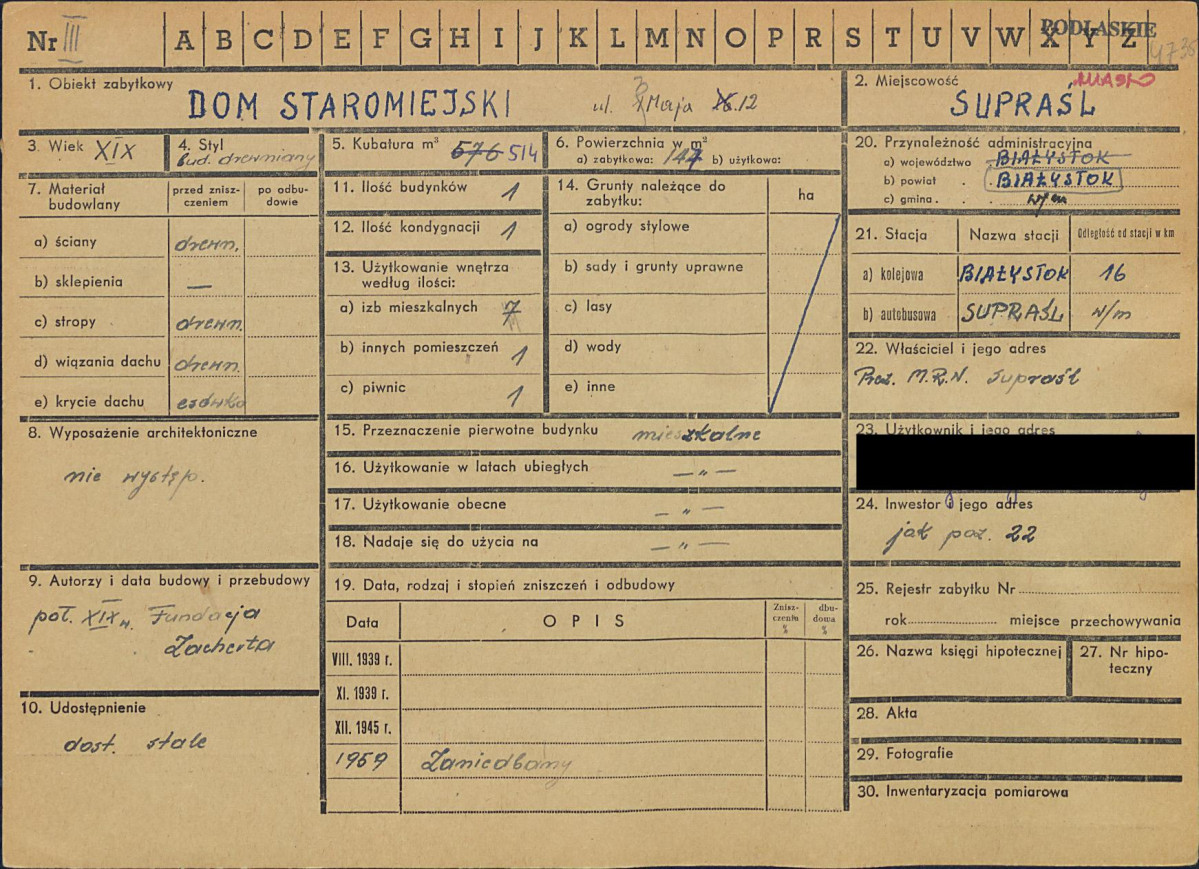 Nr III A B C D E F G H I J K L M N O P R S T U V W X Y Z PODLASKIE
1. Obiekt zabytkowy
DOM STAROMIEJSKI ul. 3 Maja 12
2. Miejscowość MIASTO
SUPRAŚL
3. Wiek XIX
4. Styl
bud. drewniany
5. Kubatura m³ 576 514
6. Powierzchnia w m²
a) zabytkowa: 147 b) użytkowa:
7. Materiał budowlany
przed zniszczeniem
po odbudowie
a) ściany drewn.
b) sklepienia —
c) stropy drewn.
d) wiązania dachu drewn.
e) krycie dachu esówka
8. Wyposażenie architektoniczne
nie występ.
9. Autorzy i data budowy i przebudowy
poł. XIX w. Fundacja
Zacherta
10. Udostępnienie
dost. stale
11. Ilość budynków 1
12. Ilość kondygnacji 1
13. Użytkowanie wnętrza
według ilości:
a) izb mieszkalnych 7
b) innych pomieszczeń 1
c) piwnic 1
14. Grunty należące do
zabytku:
ha
a) ogrody stylowe
b) sady i grunty uprawne
c) lasy
d) wody
e) inne
15. Przeznaczenie pierwotne budynku mieszkalne
16. Użytkowanie w latach ubiegłych — „ —
17. Użytkowanie obecne — „ —
18. Nadaje się do użycia na — „ —
19. Data, rodzaj i stopień zniszczeń i odbudowy
Data OPIS Zniszczenia % dbudowa %
VIII. 1939 r.
XI. 1939 r.
XII. 1945 r.
1959 Zaniedbany
20. Przynależność administracyjna
a) województwo BIAŁYSTOK
b) powiat . . BIAŁYSTOK
c) gmina . . w/m
21. Stacja Nazwa stacji Odległość od stacji w km
a) kolejowa BIAŁYSTOK 16
b) autobusowa SUPRAŚL w/m
22. Właściciel i jego adres
Prez. M.R.N. Supraśl
23. Użytkownik i jego adres
24. Inwestor i jego adres
jak poz. 22
25. Rejestr zabytku Nr
rok miejsce przechowywania
26. Nazwa księgi hipotecznej
27. Nr hipo-
teczny
28. Akta
29. Fotografie
30. Inwentaryzacja pomiarowa